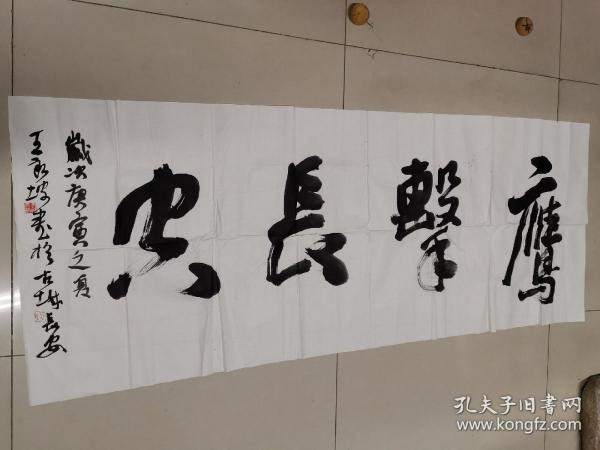 鷹擊長空
歲次庚寅之夏
王

書於古城長安
孔夫子旧書网
www.kongfz.com